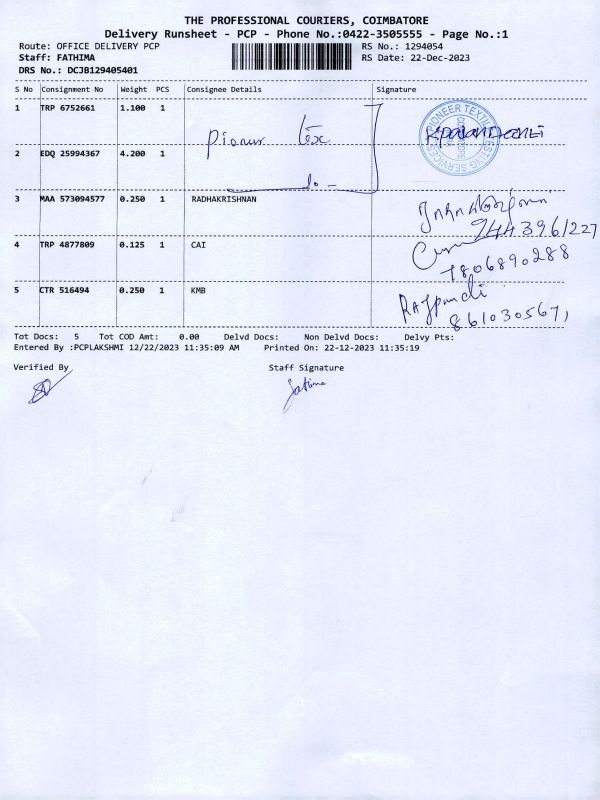 THE PROFESSIONAL COURIERS, COIMBATORE
Delivery Runsheet - PCP - Phone No.:0422-3505555 - Page No.:1
Route: OFFICE DELIVERY PCP RS No.: 1294054
Staff: FATHIMA RS Date: 22-Dec-2023
DRS No.: DCJB129405401
S No Consignment No Weight PCS Consignee Details Signature
1 TRP 6752661 1.100 1
Pionur Tex
PIONEER TEXTILE TESTING SERVICES
2 EDQ 25994367 4.200 1
do -
3 MAA 573094577 0.250 1 RADHAKRISHNAN
9443961227
4 TRP 4877809 0.125 1 CAI
7806890288
5 CTR 516494 0.250 1 KMB
Rajpandi
8610305671
Tot Docs: 5 Tot COD Amt: 0.00 Delvd Docs: Non Delvd Docs: Delvy Pts:
Entered By :PCPLAKSHMI 12/22/2023 11:35:09 AM Printed On: 22-12-2023 11:35:19
Verified By Staff Signature
Fathima